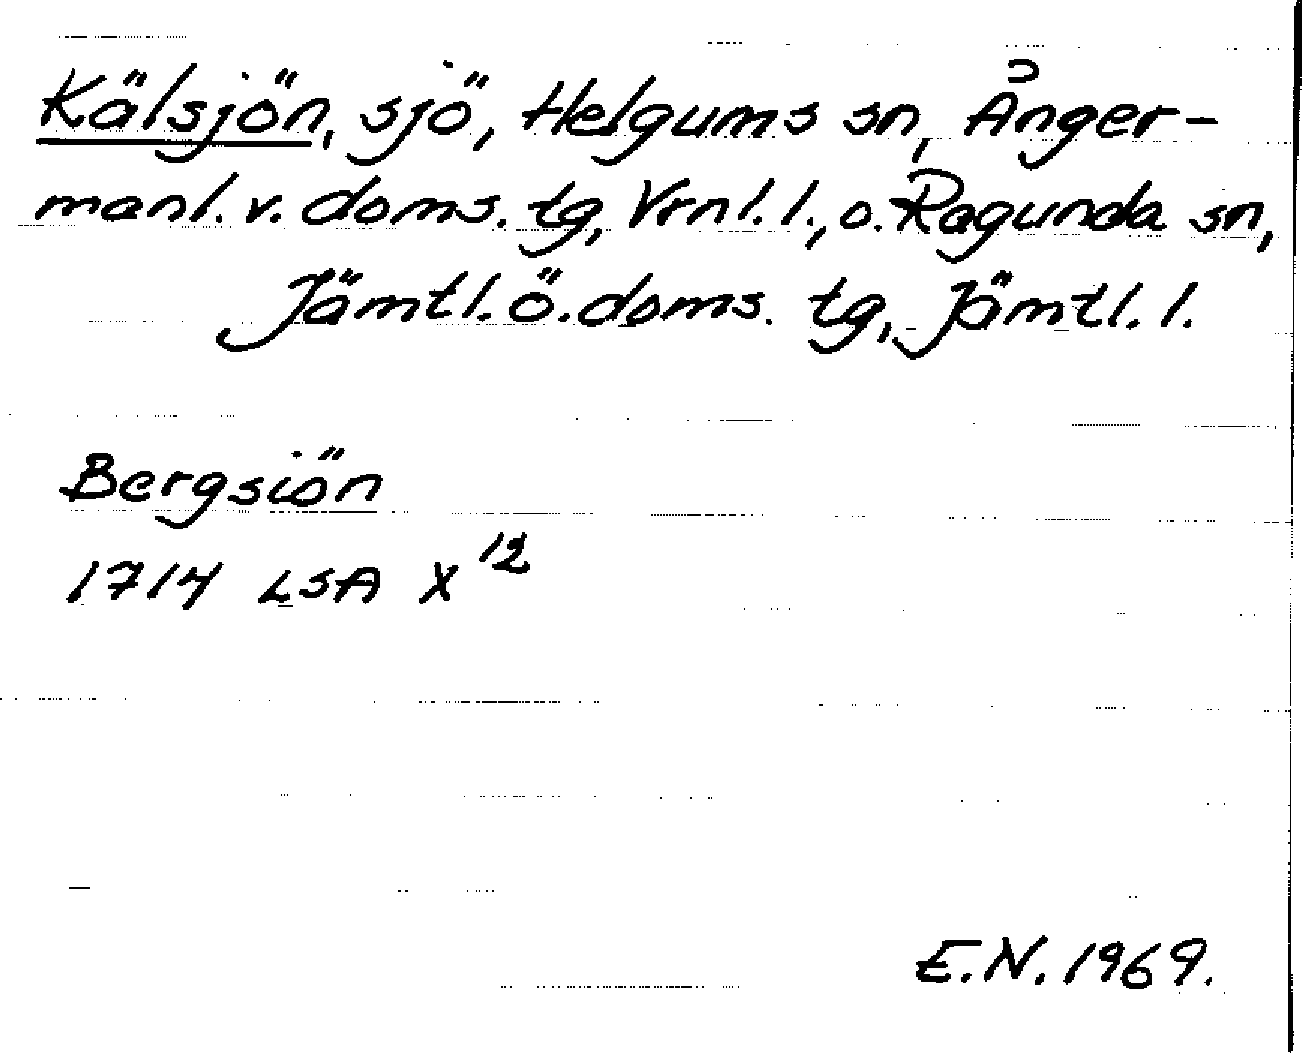 Kälsjön, sjö, Helgums sn, Ånger-
manl. v. doms. tg, Vrnl. l., o. Ragunda sn,
Jämtl. ö. doms. tg, Jämtl. l.
Bergsiön
1714 LSA X 12
E.N. 1969.